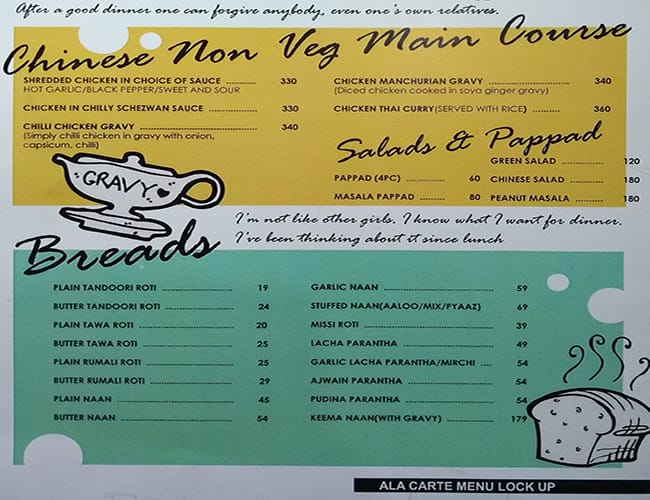 After a good dinner one can forgive anybody, even one's own relatives.
Chinese Non Veg Main Course
SHREDDED CHICKEN IN CHOICE OF SAUCE .......... 330
HOT GARLIC/BLACK PEPPER/SWEET AND SOUR
CHICKEN IN CHILLY SCHEZWAN SAUCE .......... 330
CHILLI CHICKEN GRAVY .......... 340
(Simply chilli chicken in gravy with onion,
capsicum, chilli)
CHICKEN MANCHURIAN GRAVY .......... 340
(Diced chicken cooked in soya ginger gravy)
CHICKEN THAI CURRY(SERVED WITH RICE) .......... 360
Salads & Pappad
PAPPAD (4PC) .......... 60
MASALA PAPPAD .......... 80
GREEN SALAD .......... 120
CHINESE SALAD .......... 180
PEANUT MASALA .......... 180
GRAVY
I'm not like other girls. I know what I want for dinner.
I've been thinking about it since lunch
Breads
PLAIN TANDOORI ROTI .......... 19
BUTTER TANDOORI ROTI .......... 24
PLAIN TAWA ROTI .......... 20
BUTTER TAWA ROTI .......... 25
PLAIN RUMALI ROTI .......... 25
BUTTER RUMALI ROTI .......... 29
PLAIN NAAN .......... 45
BUTTER NAAN .......... 54
GARLIC NAAN .......... 59
STUFFED NAAN(AALOO/MIX/PYAAZ) .......... 69
MISSI ROTI .......... 39
LACHA PARANTHA .......... 49
GARLIC LACHA PARANTHA/MIRCHI .......... 54
AJWAIN PARANTHA .......... 54
PUDINA PARANTHA .......... 54
KEEMA NAAN(WITH GRAVY) .......... 179
ALA CARTE MENU LOCK UP